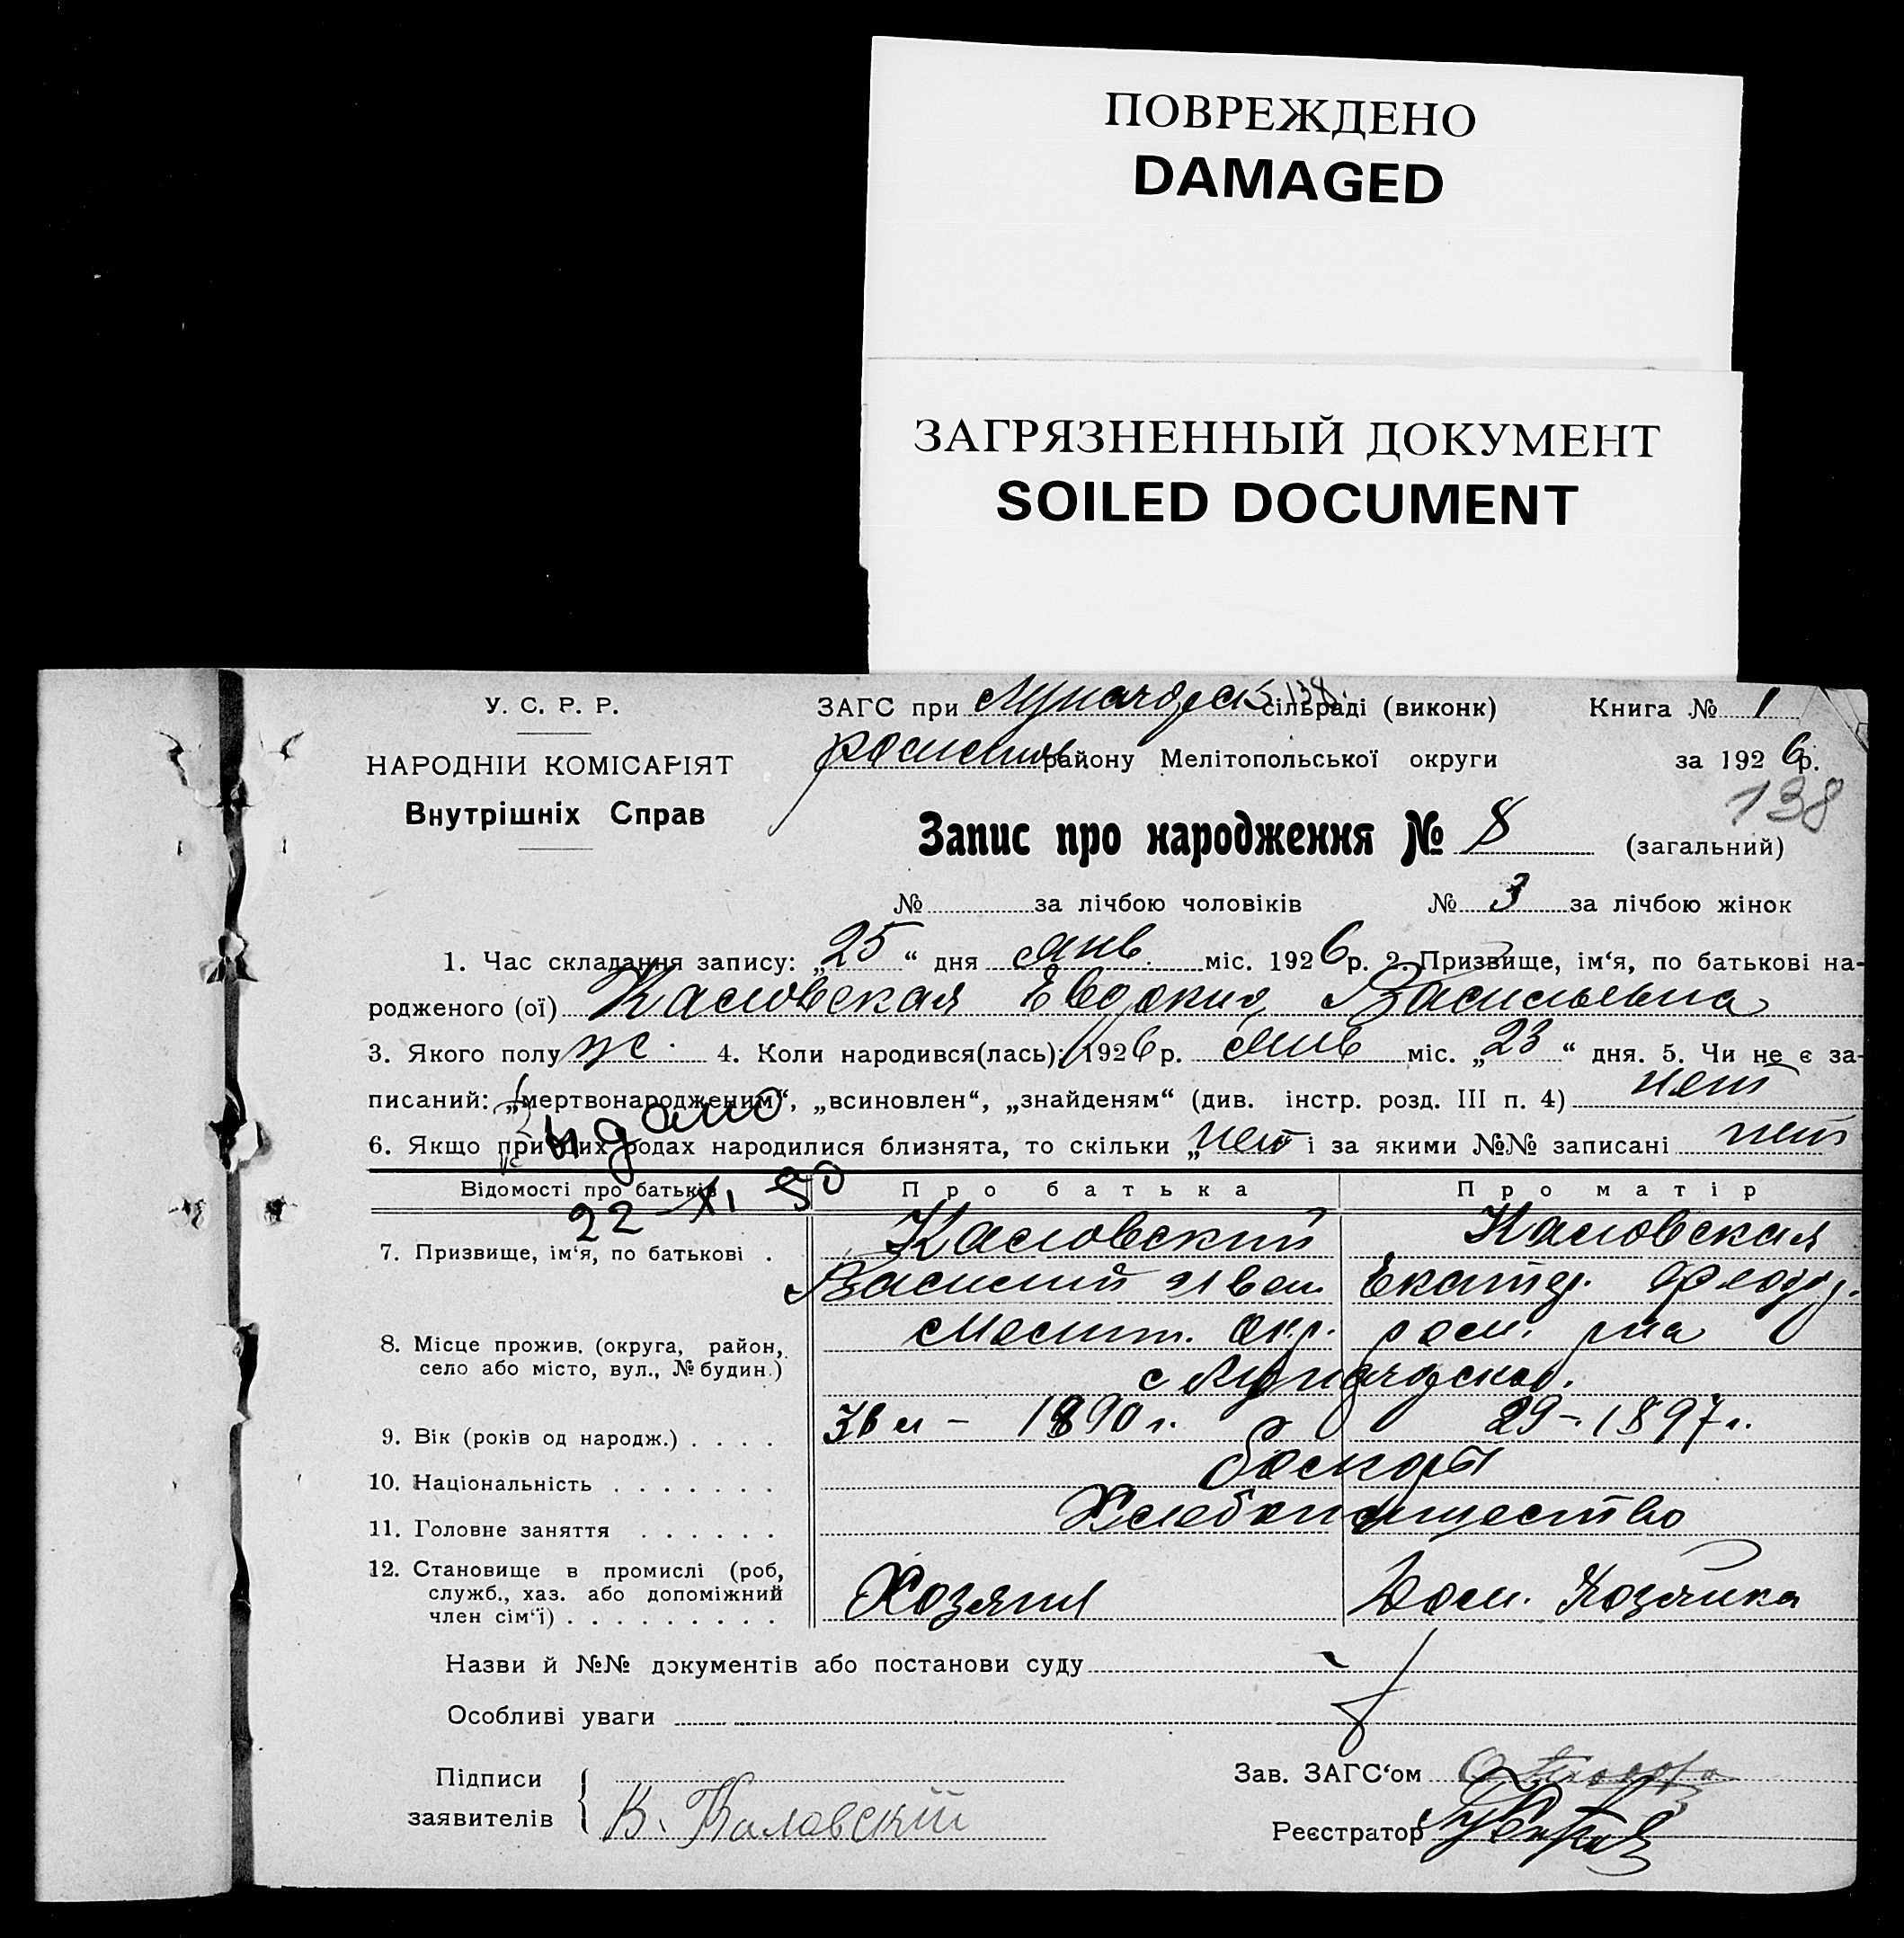 ПОВРЕЖДЕНО
DAMAGED
ЗАГРЯЗНЕННЫЙ ДОКУМЕНТ
SOILED DOCUMENT
У. С. Р. Р.
НАРОДНІЙ КОМІСАРІЯТ
Внутрішніх Справ
ЗАГС при сільраді (виконк) Книга № 1
району Мелітопольської округи за 1926 р.
138
Запис про народження № 8 (загальний)
№ за лічбою чоловіків № 3 за лічбою жінок
1. Час складання запису: „25“ дня янв. міс. 1926 р. 2. Призвище, ім‘я, по батькові на-
родженого (ої) Каловская Евдокия Васильевна
3. Якого полу ж. 4. Коли народився(лась): 1926 р. янв міс. „23“ дня. 5. Чи не є за-
писаний: „мертвонародженим“, „всиновлен“, „знайденям“ (див. інстр. розд. III п. 4) нет
6. Якщо при цих родах народилися близнята, то скільки „нет і за якими №№ записані нет
Видано
22 XI 50
Відомості про батьків Про батька Про матір
7. Призвище, ім‘я, по батькові . Каловский Каловская
Василий Иван. Екатер. Федор.
8. Місце прожив. (округа, район, Мелит. окр. ром. р-на
село або місто, вул., № будин.) с
9. Вік (років од народж.) . . . . 36 л - 1890 г. 29 - 1897 г.
10. Національність . . . . . . .
11. Головне заняття . . . . . . Хлебопашество
12. Становище в промислі (роб, служб., хаз. або допоміжний член сім‘ї) . . . . . . . . . Хозяин Дом. Хозяйка
Назви й №№ документів або постанови суду
Особливі уваги
Підписи заявителів В. Каловскій
Зав. ЗАГС‘ом
Реєстратор